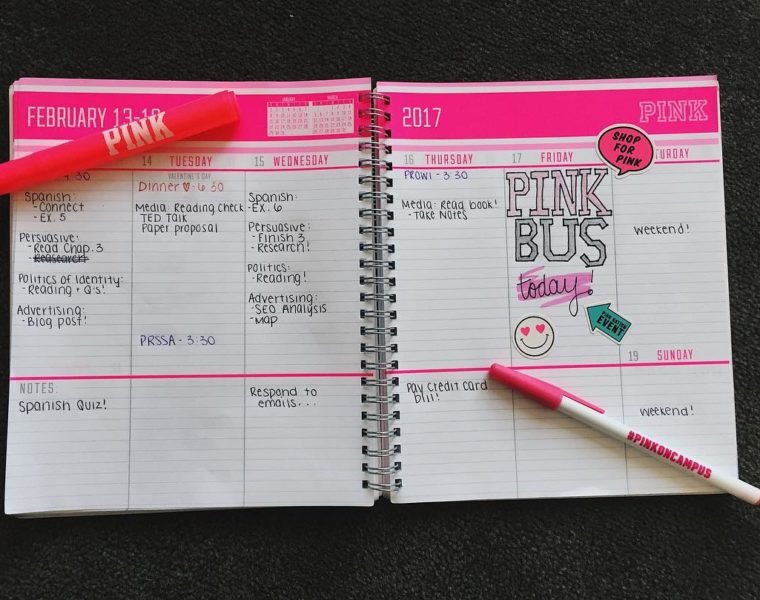 FEBRUARY 13-19
PINK
JANUARY
MARCH
2017
PINK
SHOP
FOR
PINK
14 TUESDAY
15 WEDNESDAY
16 THURSDAY
17 FRIDAY
URDAY
4:30
Spanish:
- Connect
- EX. 5
Persuasive:
- Read Chap. 3
- Reasearch!
Politics of Identity:
- Reading + Q's!
Advertising:
- Blog post!
VALENTINE'S DAY
Dinner ♡ 6:30
Media: Reading Check
TED Talk
Paper proposal
PRSSA - 3:30
Spanish:
- EX. 6
Persuasive:
- Finish 3
- Research!
Politics:
- Reading!
Advertising:
- SEO Analysis
- Map
PROWL - 3:30
Media: Read book!
- Take Notes
PINK
BUS
today!
PINK NATION
EVENT
Weekend!
19 SUNDAY
NOTES:
Spanish Quiz!
Respond to
emails...
Pay Credit Card
bill!
Weekend!
#PINKONCAMPUS